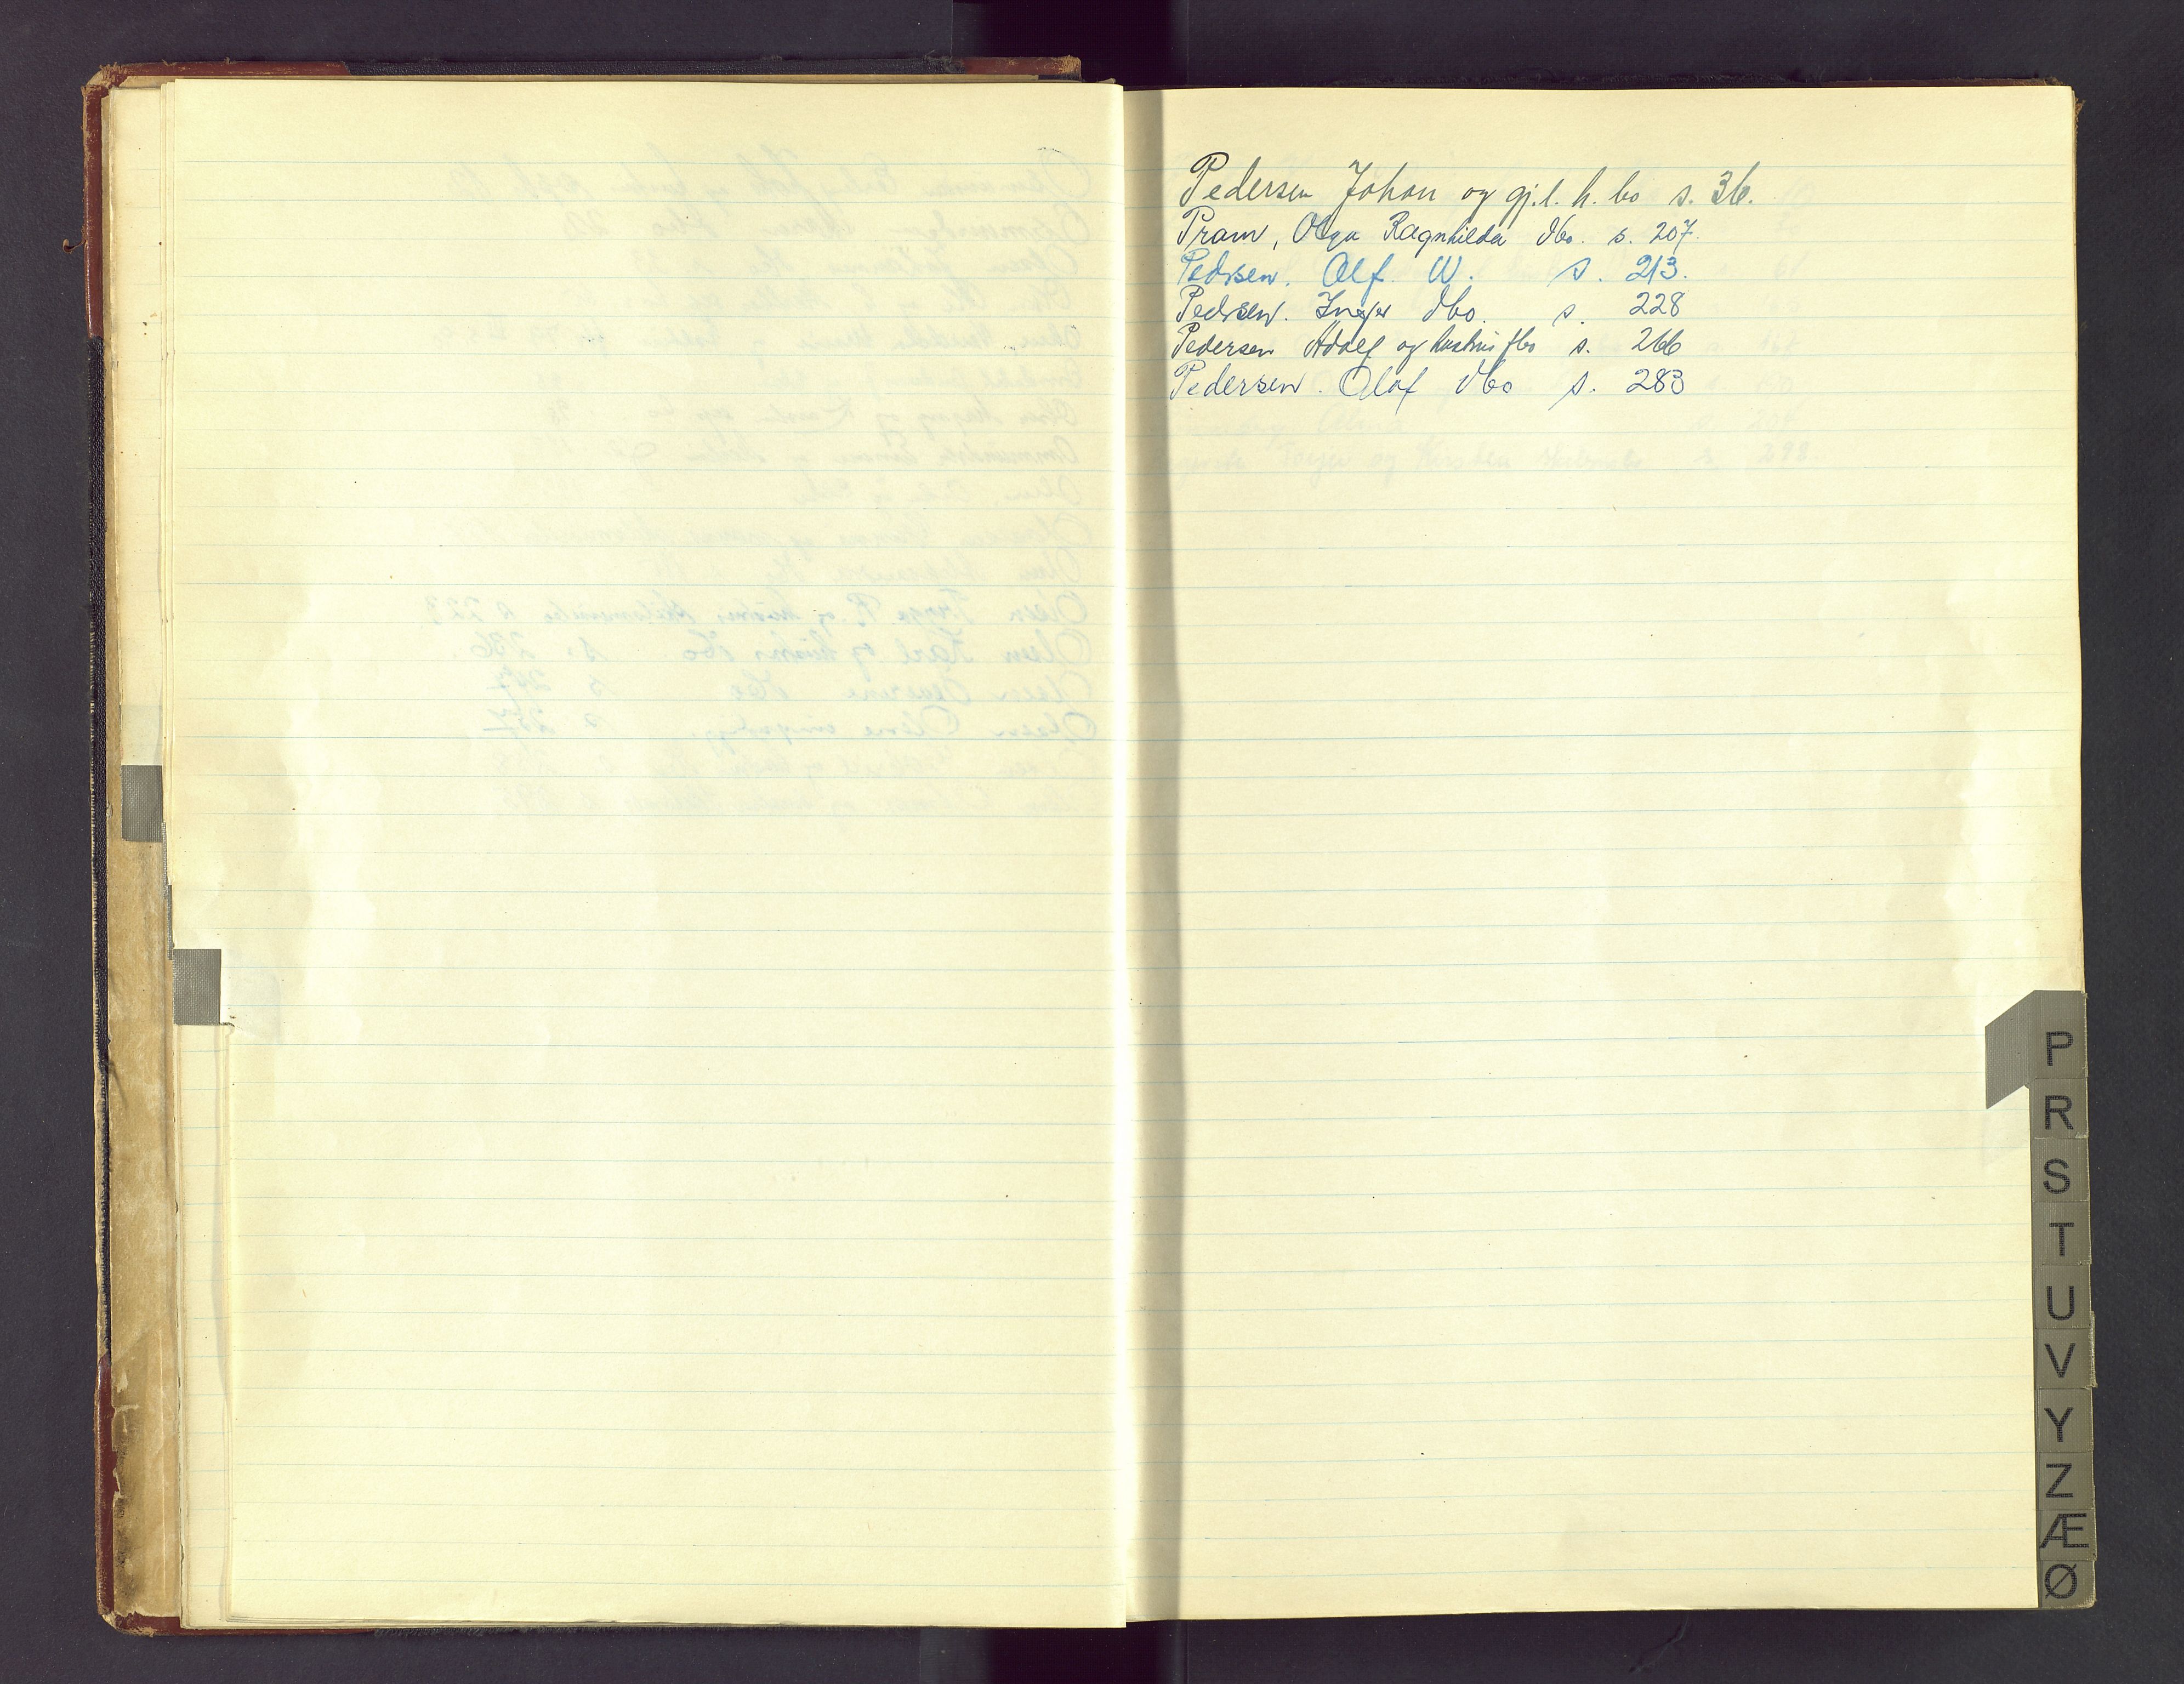 Pedersen Johan og gj.l. h. bo s. 36.
Pram, Olga Ragnhilda dbo. s. 207.
Pedersen. Alf. W. s. 213.
Pedersen. Inger dbo. s. 228
Pedersen Adolf og hustrus fbo s. 266
Pedersen. Olaf dbo s. 283
P
R
S
T
U
V
Y
Z
Æ
Ø